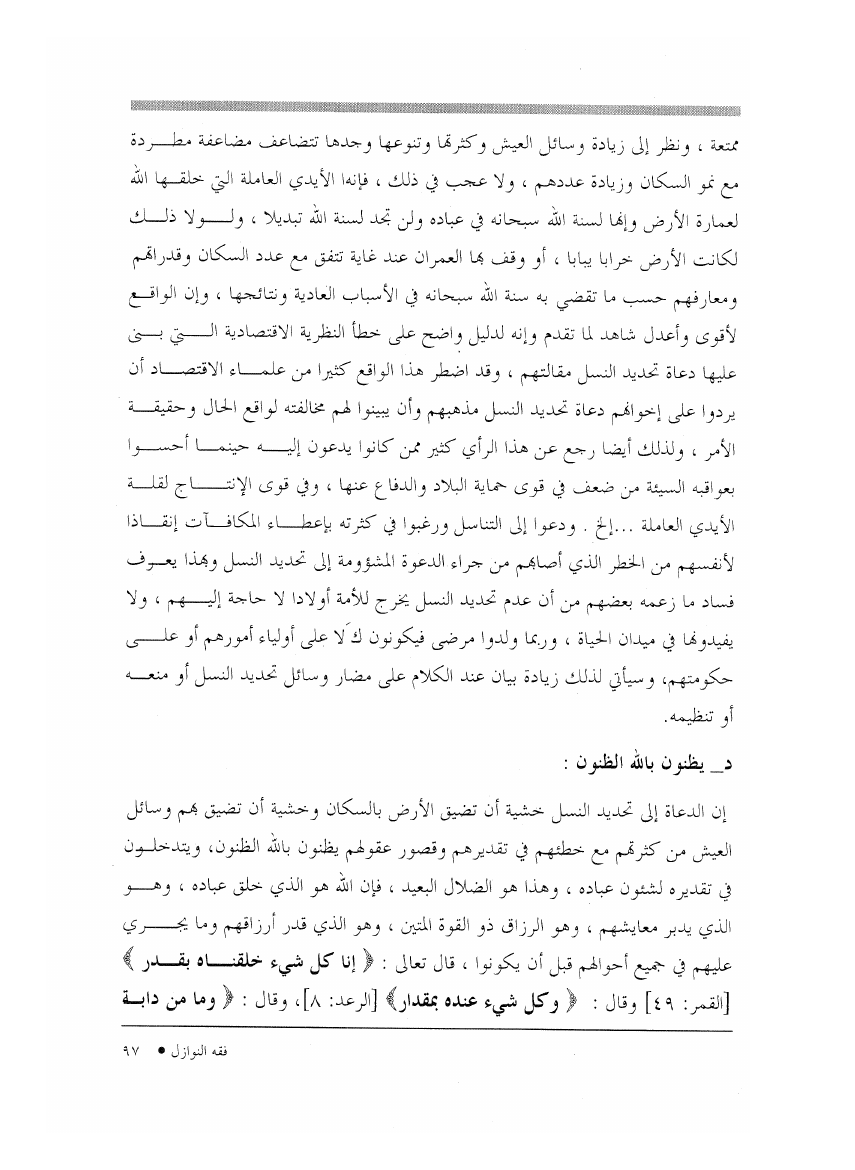 ممتعة ، ونظر إلى زيادة وسائل العيش وكثرتها وتنوعها وجدها تتضاعف مضاعفة مطردة
مع نمو السكان وزيادة عددهم ، ولا عجب في ذلك ، فإنها الأيدي العاملة التي خلقها الله
لعمارة الأرض وإنها لسنة الله سبحانه في عباده ولن تجد لسنة الله تبديلا ، ولولا ذلك
لكانت الأرض خرابا يبابا ، أو وقف بها العمران عند غاية تتفق مع عدد السكان وقدراتهم
ومعارفهم حسب ما تقضي به سنة الله سبحانه في الأسباب العادية ونتائجها ، وإن الواقع
لأقوى وأعدل شاهد لما تقدم وإنه لدليل واضح على خطأ النظرية الاقتصادية التي بنى
عليها دعاة تحديد النسل مقالتهم ، وقد اضطر هذا الواقع كثيرا من علماء الاقتصاد أن
يردوا على إخوانهم دعاة تحديد النسل مذهبهم وأن يبينوا لهم مخالفته لواقع الحال وحقيقة
الأمر ، ولذلك أيضا رجع عن هذا الرأي كثير ممن كانوا يدعون إليه حينما أحسوا
بعواقبه السيئة من ضعف في قوى حماية البلاد والدفاع عنها ، وفي قوى الإنتاج لقلة
الأيدي العاملة ...إلخ . ودعوا إلى التناسل ورغبوا في كثرته بإعطاء المكافآت إنقاذا
لأنفسهم من الخطر الذي أصابهم من جراء الدعوة المشؤومة إلى تحديد النسل وبهذا يعرف
فساد ما زعمه بعضهم من أن عدم تحديد النسل يخرج للأمة أولادا لا حاجة إليهم ، ولا
يفيدونها في ميدان الحياة ، وربما ولدوا مرضى فيكونون كَلا على أولياء أمورهم أو على
حكومتهم، وسيأتي لذلك زيادة بيان عند الكلام على مضار وسائل تحديد النسل أو منعه
أو تنظيمه.
د_ يظنون بالله الظنون :
إن الدعاة إلى تحديد النسل خشية أن تضيق الأرض بالسكان وخشية أن تضيق بهم وسائل
العيش من كثرتهم مع خطئهم في تقديرهم وقصور عقولهم يظنون بالله الظنون، ويتدخلون
في تقديره لشئون عباده ، وهذا هو الضلال البعيد ، فإن الله هو الذي خلق عباده ، وهو
الذي يدبر معايشهم ، وهو الرزاق ذو القوة المتين ، وهو الذي قدر أرزاقهم وما يجري
عليهم في جميع أحوالهم قبل أن يكونوا ، قال تعالى : ﴿ إنا كل شيء خلقناه بقدر ﴾
[القمر: ٤٩] وقال : ﴿ وكل شيء عنده بمقدار﴾ [الرعد: ٨]، وقال : ﴿ وما من دابة
فقه النوازل • ٩٧